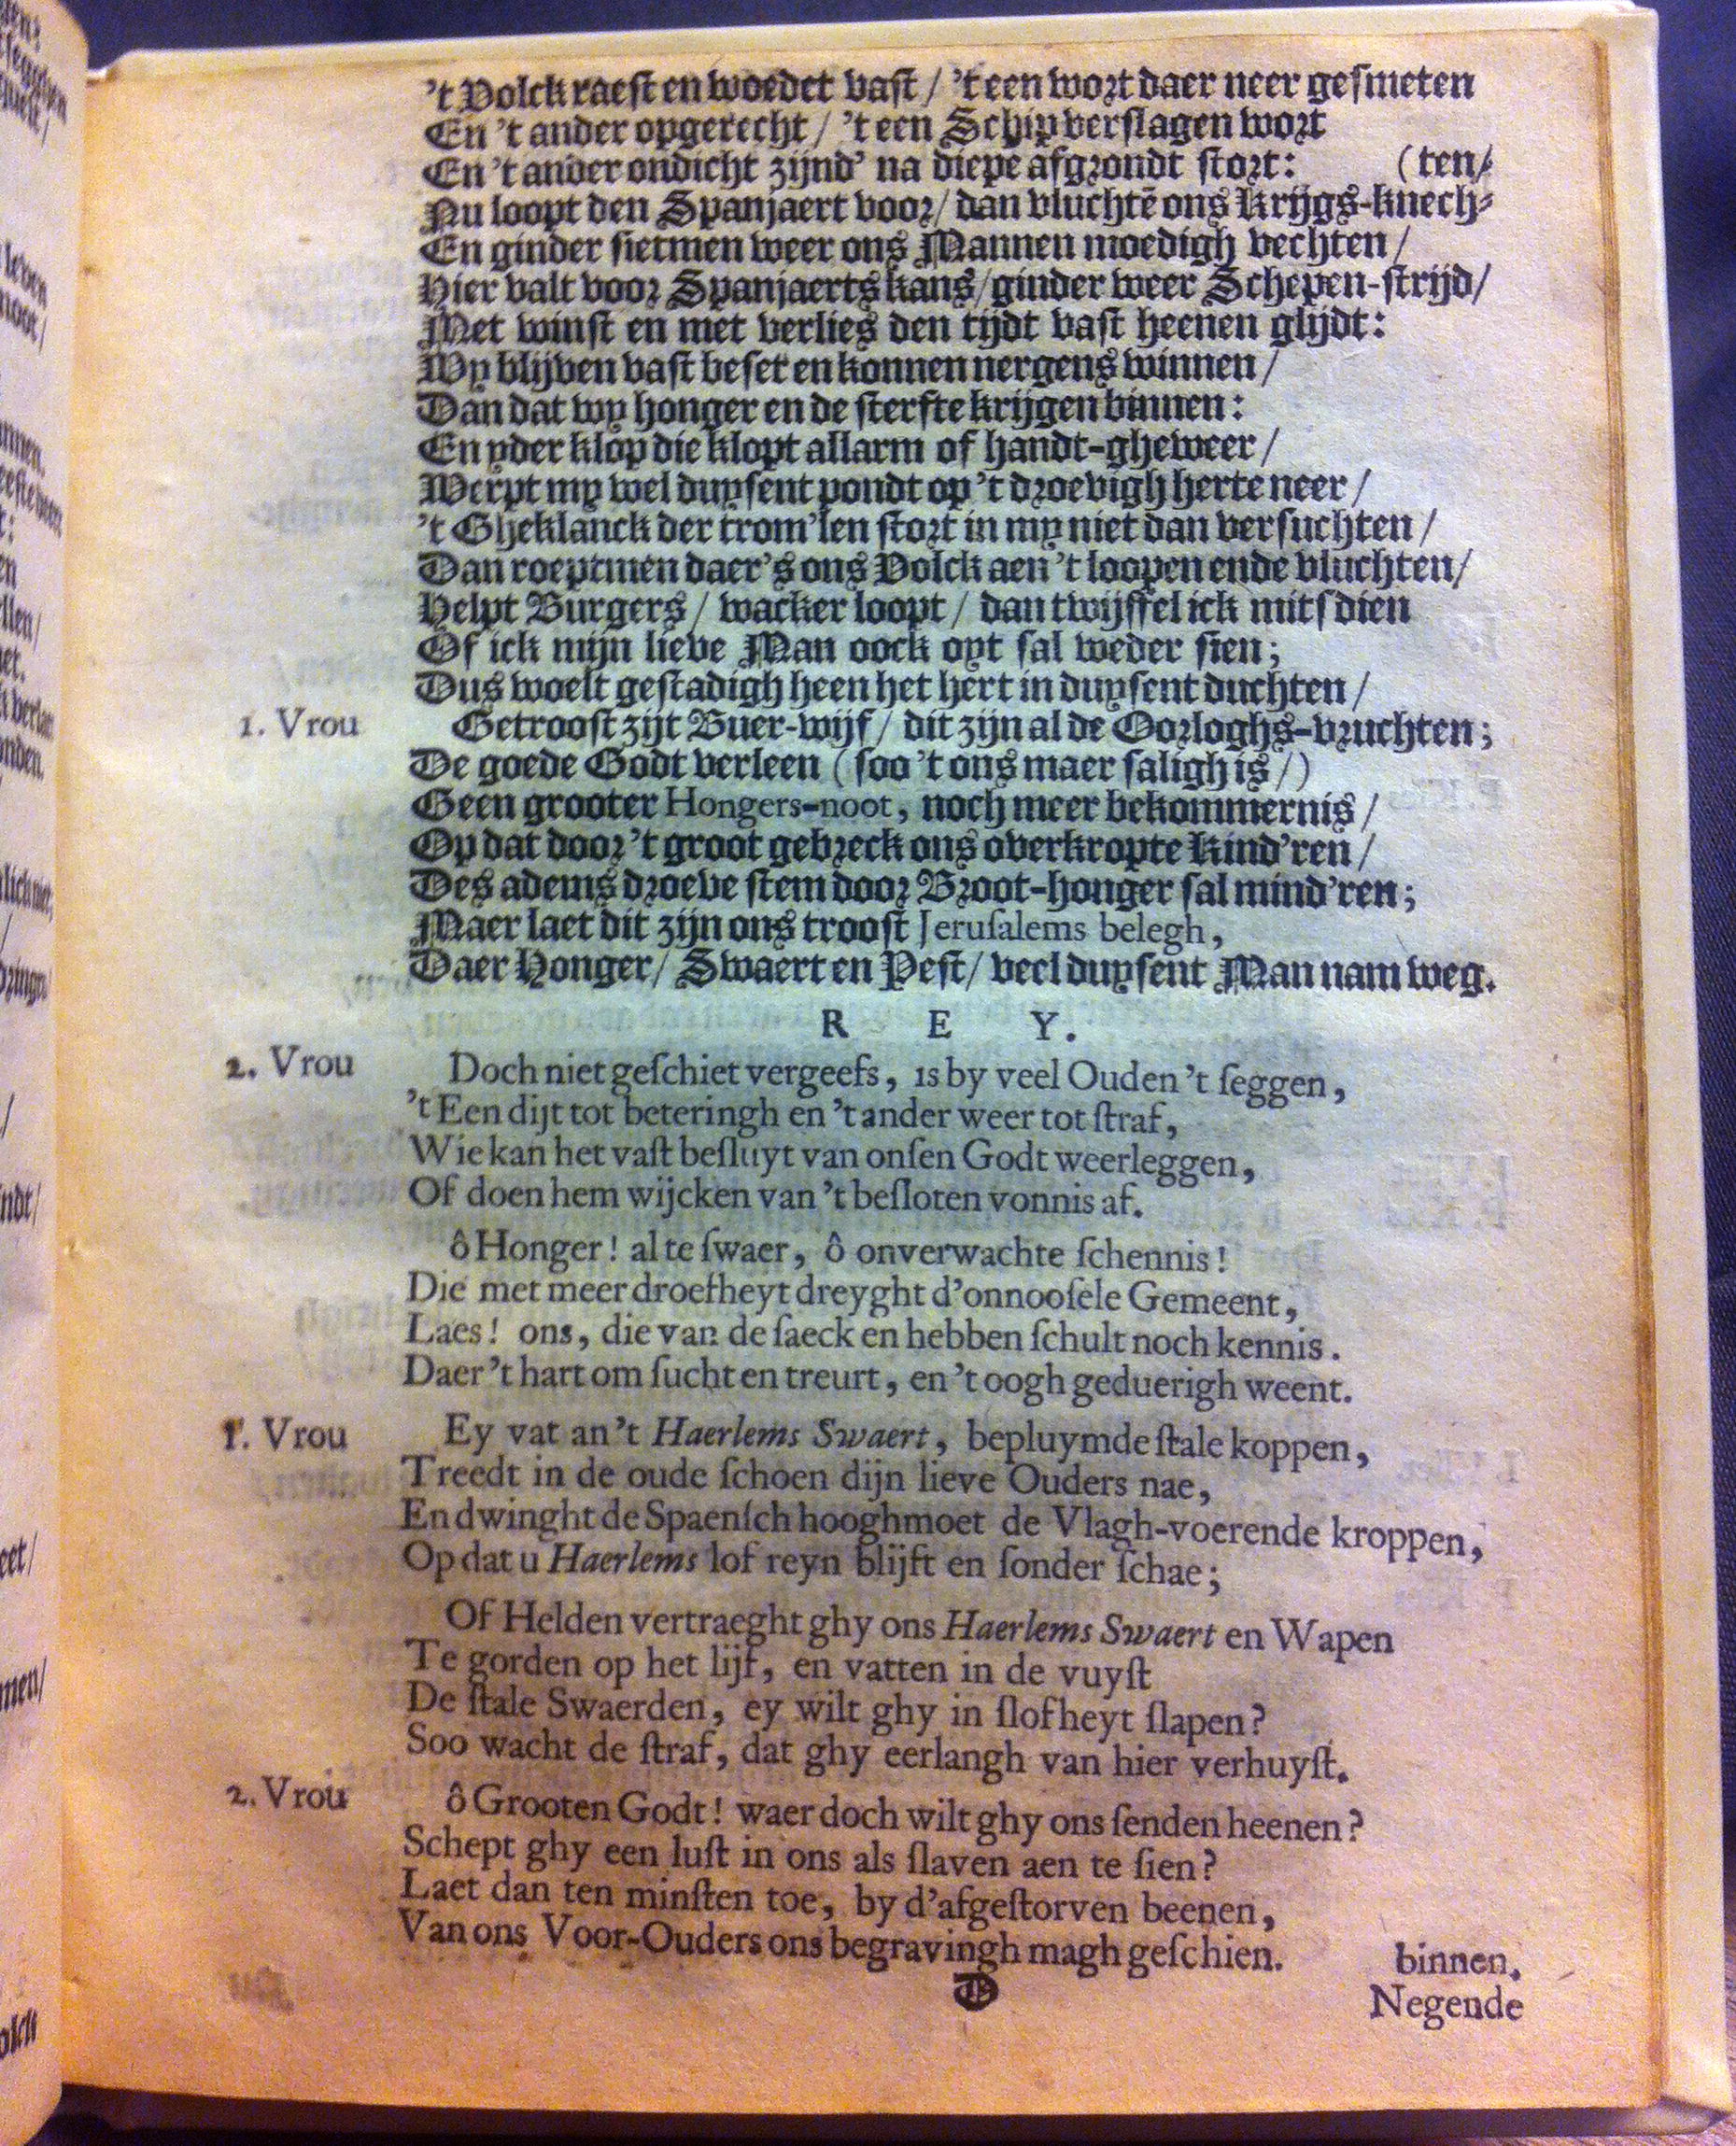 't Volck raest en woedet vast / 't een wort daer neer gesmeten
En 't ander opgerecht / 't een Schip verslagen wort
En 't ander ondicht zijnd' na diepe afgrondt stort: (ten/
Nu loopt den Spanjaert voor / dan vluchtē ons Krijgs-knech-
En ginder sietmen weer ons Mannen moedigh vechten /
Hier valt voor Spanjaerts kans / ginder weer Schepen-strijd /
Met winst en met verlies den tijdt vast heenen glijdt:
Wy blijven vast beset en konnen nergens winnen /
Dan dat wy honger en de sterfte krijgen binnen:
En yder klop die klopt allarm of handt-gheweer /
Werpt my wel duysent pondt op 't droevigh herte neer /
't Gheklanck der trom'len stort in my niet dan versuchten /
Dan roeptmen daer's ons Volck aen 't loopen ende vluchten /
Helpt Burgers / wacker loopt / dan twijffel ick mits dien
Of ick mijn lieve Man oock oyt sal weder sien;
Dus woelt gestadigh heen het hert in duysent duchten /
1. Vrou Getroost zijt Buer-wijf / dit zijn al de Oorloghs-vruchten;
De goede Godt verleen (soo 't ons maer saligh is /)
Geen grooter Hongers-noot, noch meer bekommernis /
Op dat door 't groot gebreck ons overkropte Kind'ren /
Des adems droeve stem door Broot-honger sal mind'ren;
Maer laet dit zijn ons troost Jeruſalems belegh,
Daer Honger / Swaert en Pest / veel duysent Man nam weg.
R E Y.
2. Vrou Doch niet geſchiet vergeefs, is by veel Ouden 't ſeggen,
't Een dijt tot beteringh en 't ander weer tot ſtraf,
Wie kan het vaſt beſluyt van onſen Godt weerleggen,
Of doen hem wijcken van 't beſloten vonnis af.
ô Honger! al te ſwaer, ô onverwachte ſchennis!
Die met meer droefheyt dreyght d'onnooſele Gemeent,
Laes! ons, die van de ſaeck en hebben ſchult noch kennis.
Daer 't hart om ſucht en treurt, en 't oogh geduerigh weent.
1. Vrou Ey vat an 't Haerlems Swaert, bepluymde ſtale koppen,
Treedt in de oude ſchoen dijn lieve Ouders nae,
En dwinght de Spaenſch hooghmoet de Vlagh-voerende kroppen,
Op dat u Haerlems lof reyn blijft en ſonder ſchae;
Of Helden vertraeght ghy ons Haerlems Swaert en Wapen
Te gorden op het lijf, en vatten in de vuyſt
De ſtale Swaerden, ey wilt ghy in ſlofheyt ſlapen?
Soo wacht de ſtraf, dat ghy eerlangh van hier verhuyſt.
2. Vrou ô Grooten Godt! waer doch wilt ghy ons ſenden heenen?
Schept ghy een luſt in ons als ſlaven aen te ſien?
Laet dan ten minſten toe, by d'afgeſtorven beenen,
Van ons Voor-Ouders ons begravingh magh geſchien. binnen.
D Negende